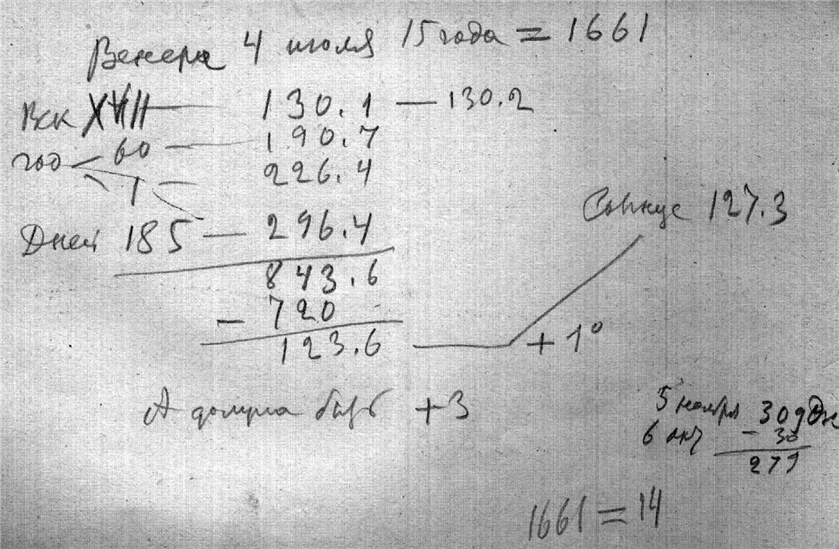 Венера 4 июля 15 года = 1661
Век XVII — 130.1 — 130.2
год 60 — 190.7
1 — 226.4
Дней 185 — 296.4
843.6
- 720
123.6 + 1°
Солнце 127.3
А должна быть +3
5 ноября 309 Дн
6 окт - 30
279
1661 = 14